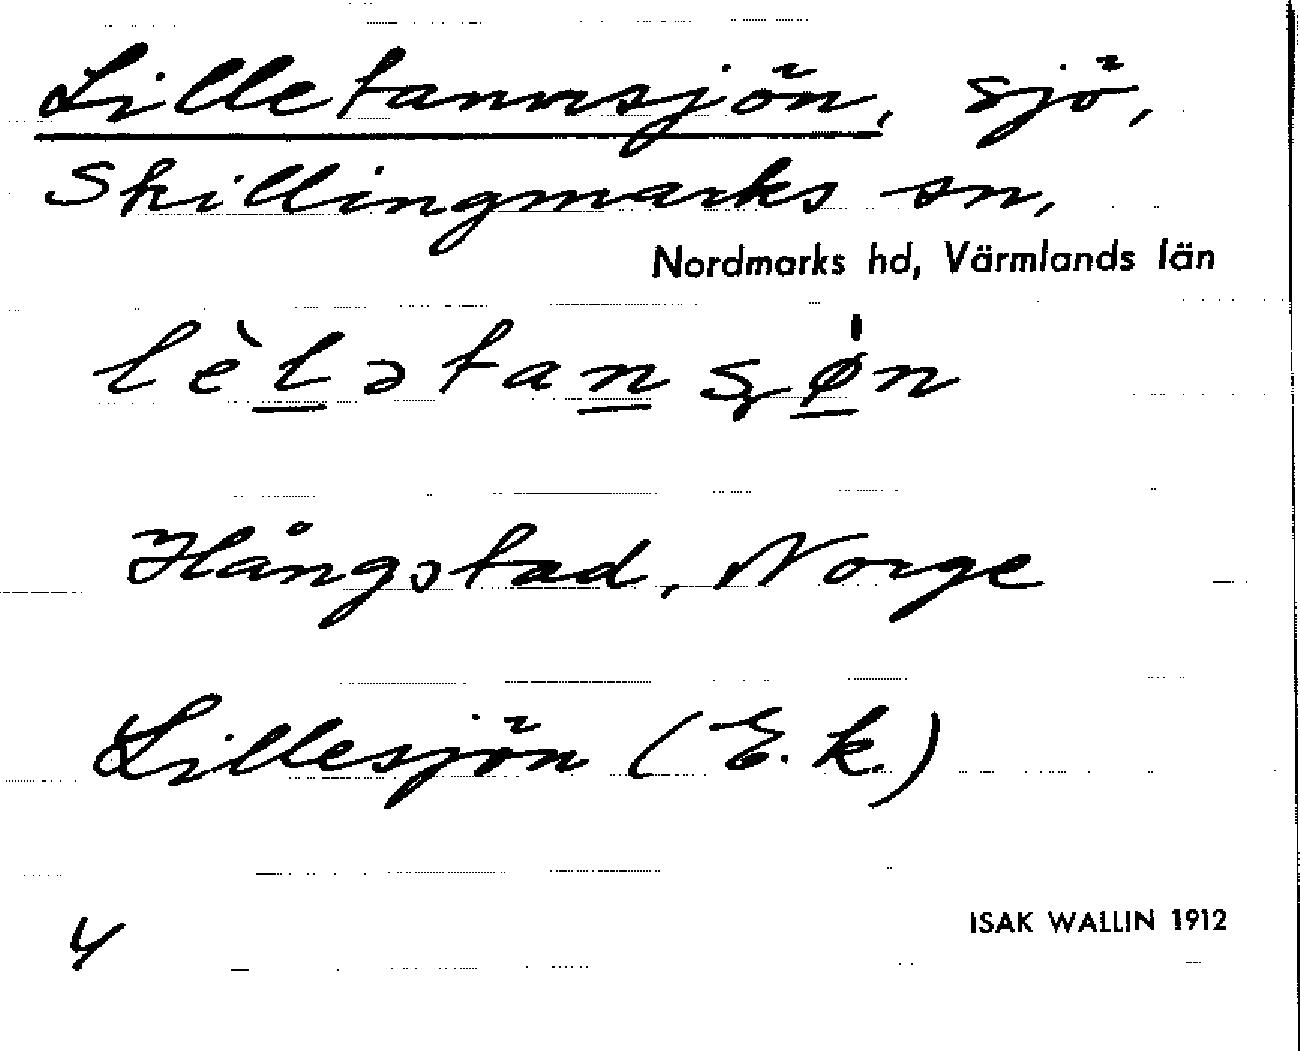 Lilletannsjön, sjö,
Skillingmarks sn,
Nordmarks hd, Värmlands län
lèlətanʂøn
Hångstad, Norge
Lillesjön (E.k.)
4
ISAK WALLIN 1912